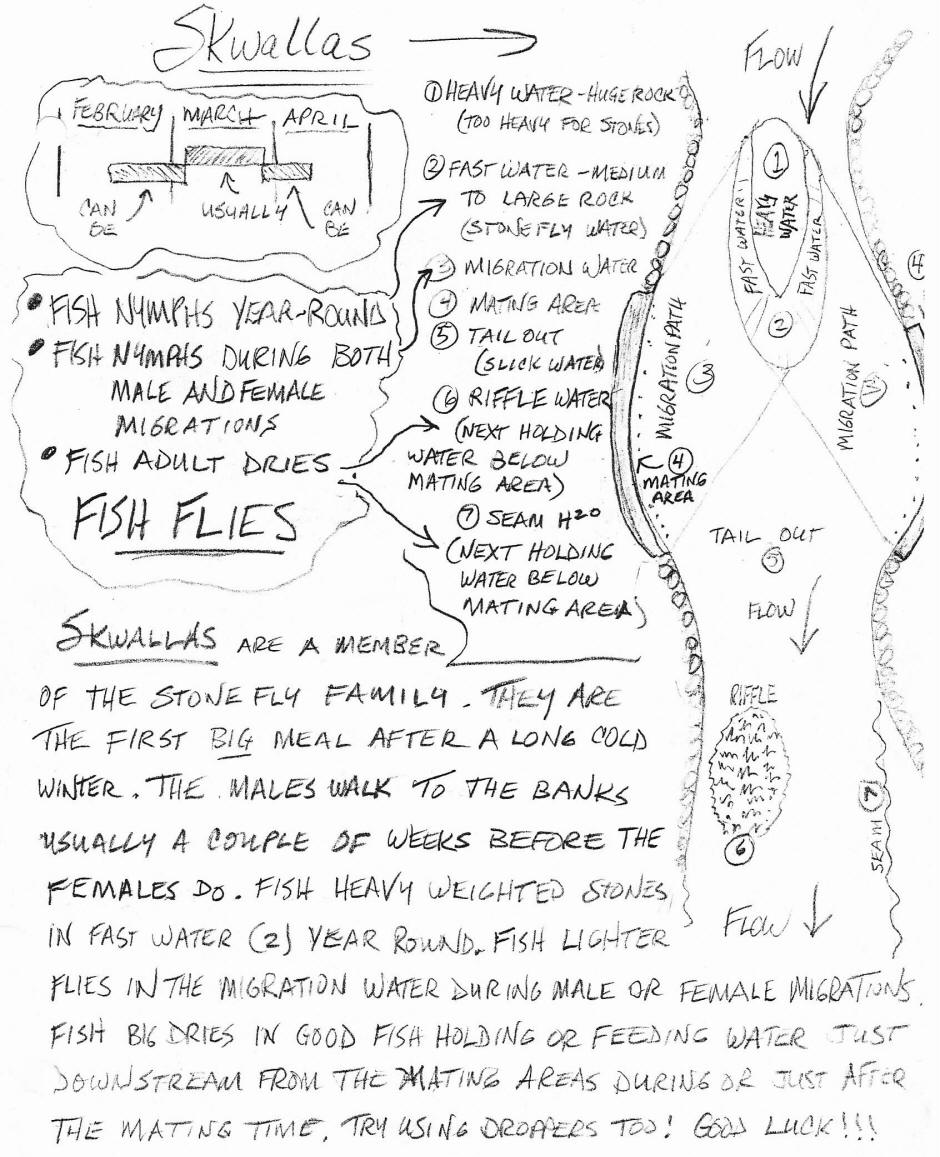 SKwallas
FEBRUARY MARCH APRIL
CAN BE USUALLY CAN BE
• FISH NYMPHS YEAR-ROUND
• FISH NYMPHS DURING BOTH
MALE AND FEMALE
MIGRATIONS
• FISH ADULT DRIES
FISH FLIES
① HEAVY WATER - HUGE ROCK
(TOO HEAVY FOR STONES)
② FAST WATER - MEDIUM
TO LARGE ROCK
(STONEFLY WATER)
③ MIGRATION WATER
④ MATING AREA
⑤ TAIL OUT
(SLICK WATER)
⑥ RIFFLE WATER
(NEXT HOLDING
WATER BELOW
MATING AREA)
⑦ SEAM H20
(NEXT HOLDING
WATER BELOW
MATING AREA)
FLOW
①
HEAVY
WATER
FAST WATER
FAST WATER
②
MIGRATION PATH
③
MIGRATION PATH
④
④
MATING
AREA
TAIL OUT
⑤
FLOW
RIFFLE
⑥
SEAM ⑦
FLOW
SKWALLAS ARE A MEMBER
OF THE STONE FLY FAMILY. THEY ARE
THE FIRST BIG MEAL AFTER A LONG COLD
WINTER. THE MALES WALK TO THE BANKS
USUALLY A COUPLE OF WEEKS BEFORE THE
FEMALES DO. FISH HEAVY WEIGHTED STONES
IN FAST WATER (2) YEAR ROUND. FISH LIGHTER
FLIES IN THE MIGRATION WATER DURING MALE OR FEMALE MIGRATIONS.
FISH BIG DRIES IN GOOD FISH HOLDING OR FEEDING WATER JUST
DOWNSTREAM FROM THE MATING AREAS DURING OR JUST AFTER
THE MATING TIME. TRY USING DROPPERS TOO! GOOD LUCK!!!